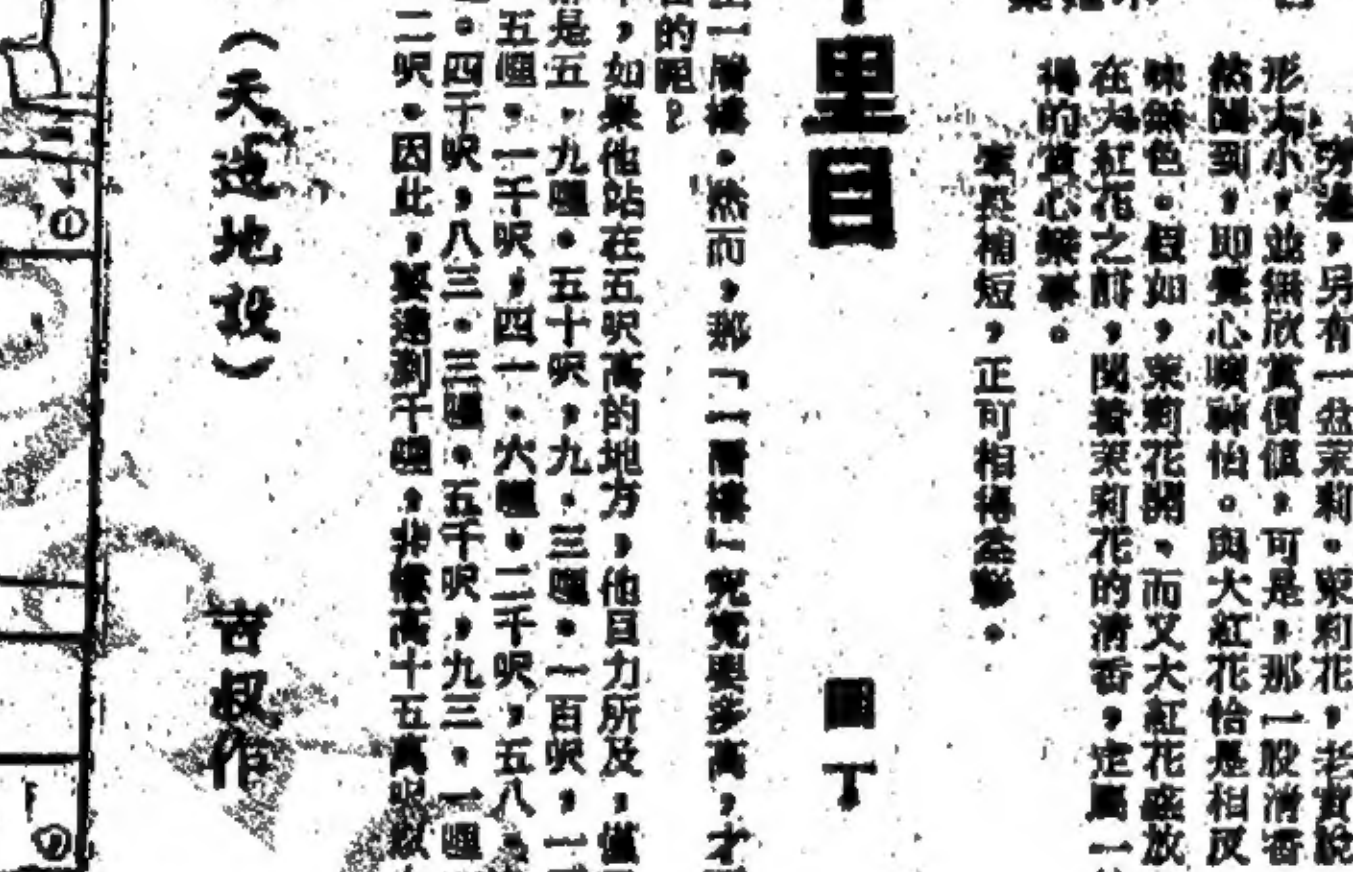 旁邊，另有一盆茉莉。茉莉花，老實說
形大小，並無欣賞價值，可是，那一股清香
然聞到，即覺心曠神怡。與大紅花恰是相反
味無色。假如，茉莉花開、而又大紅花盛放
在大紅花之前，聞着茉莉花的清香，定屬一
得的賞心樂事。
業長補短，正可相得益彰。
里目
園丁
一層樓。然而，那「一層樓」究竟要多高，才
的呢？
，如果他站在五呎高的地方，他目力所及，僅
是五．九哩。五十呎，九．三哩。一百呎，一
五哩。一千呎，四一．六哩。二千呎，五八．
。四千呎，八三．三哩。五千呎，九三．一哩
二呎。因此，要達到千哩，非樓高十五萬呎以
（天造地設）
古叔作
①
②